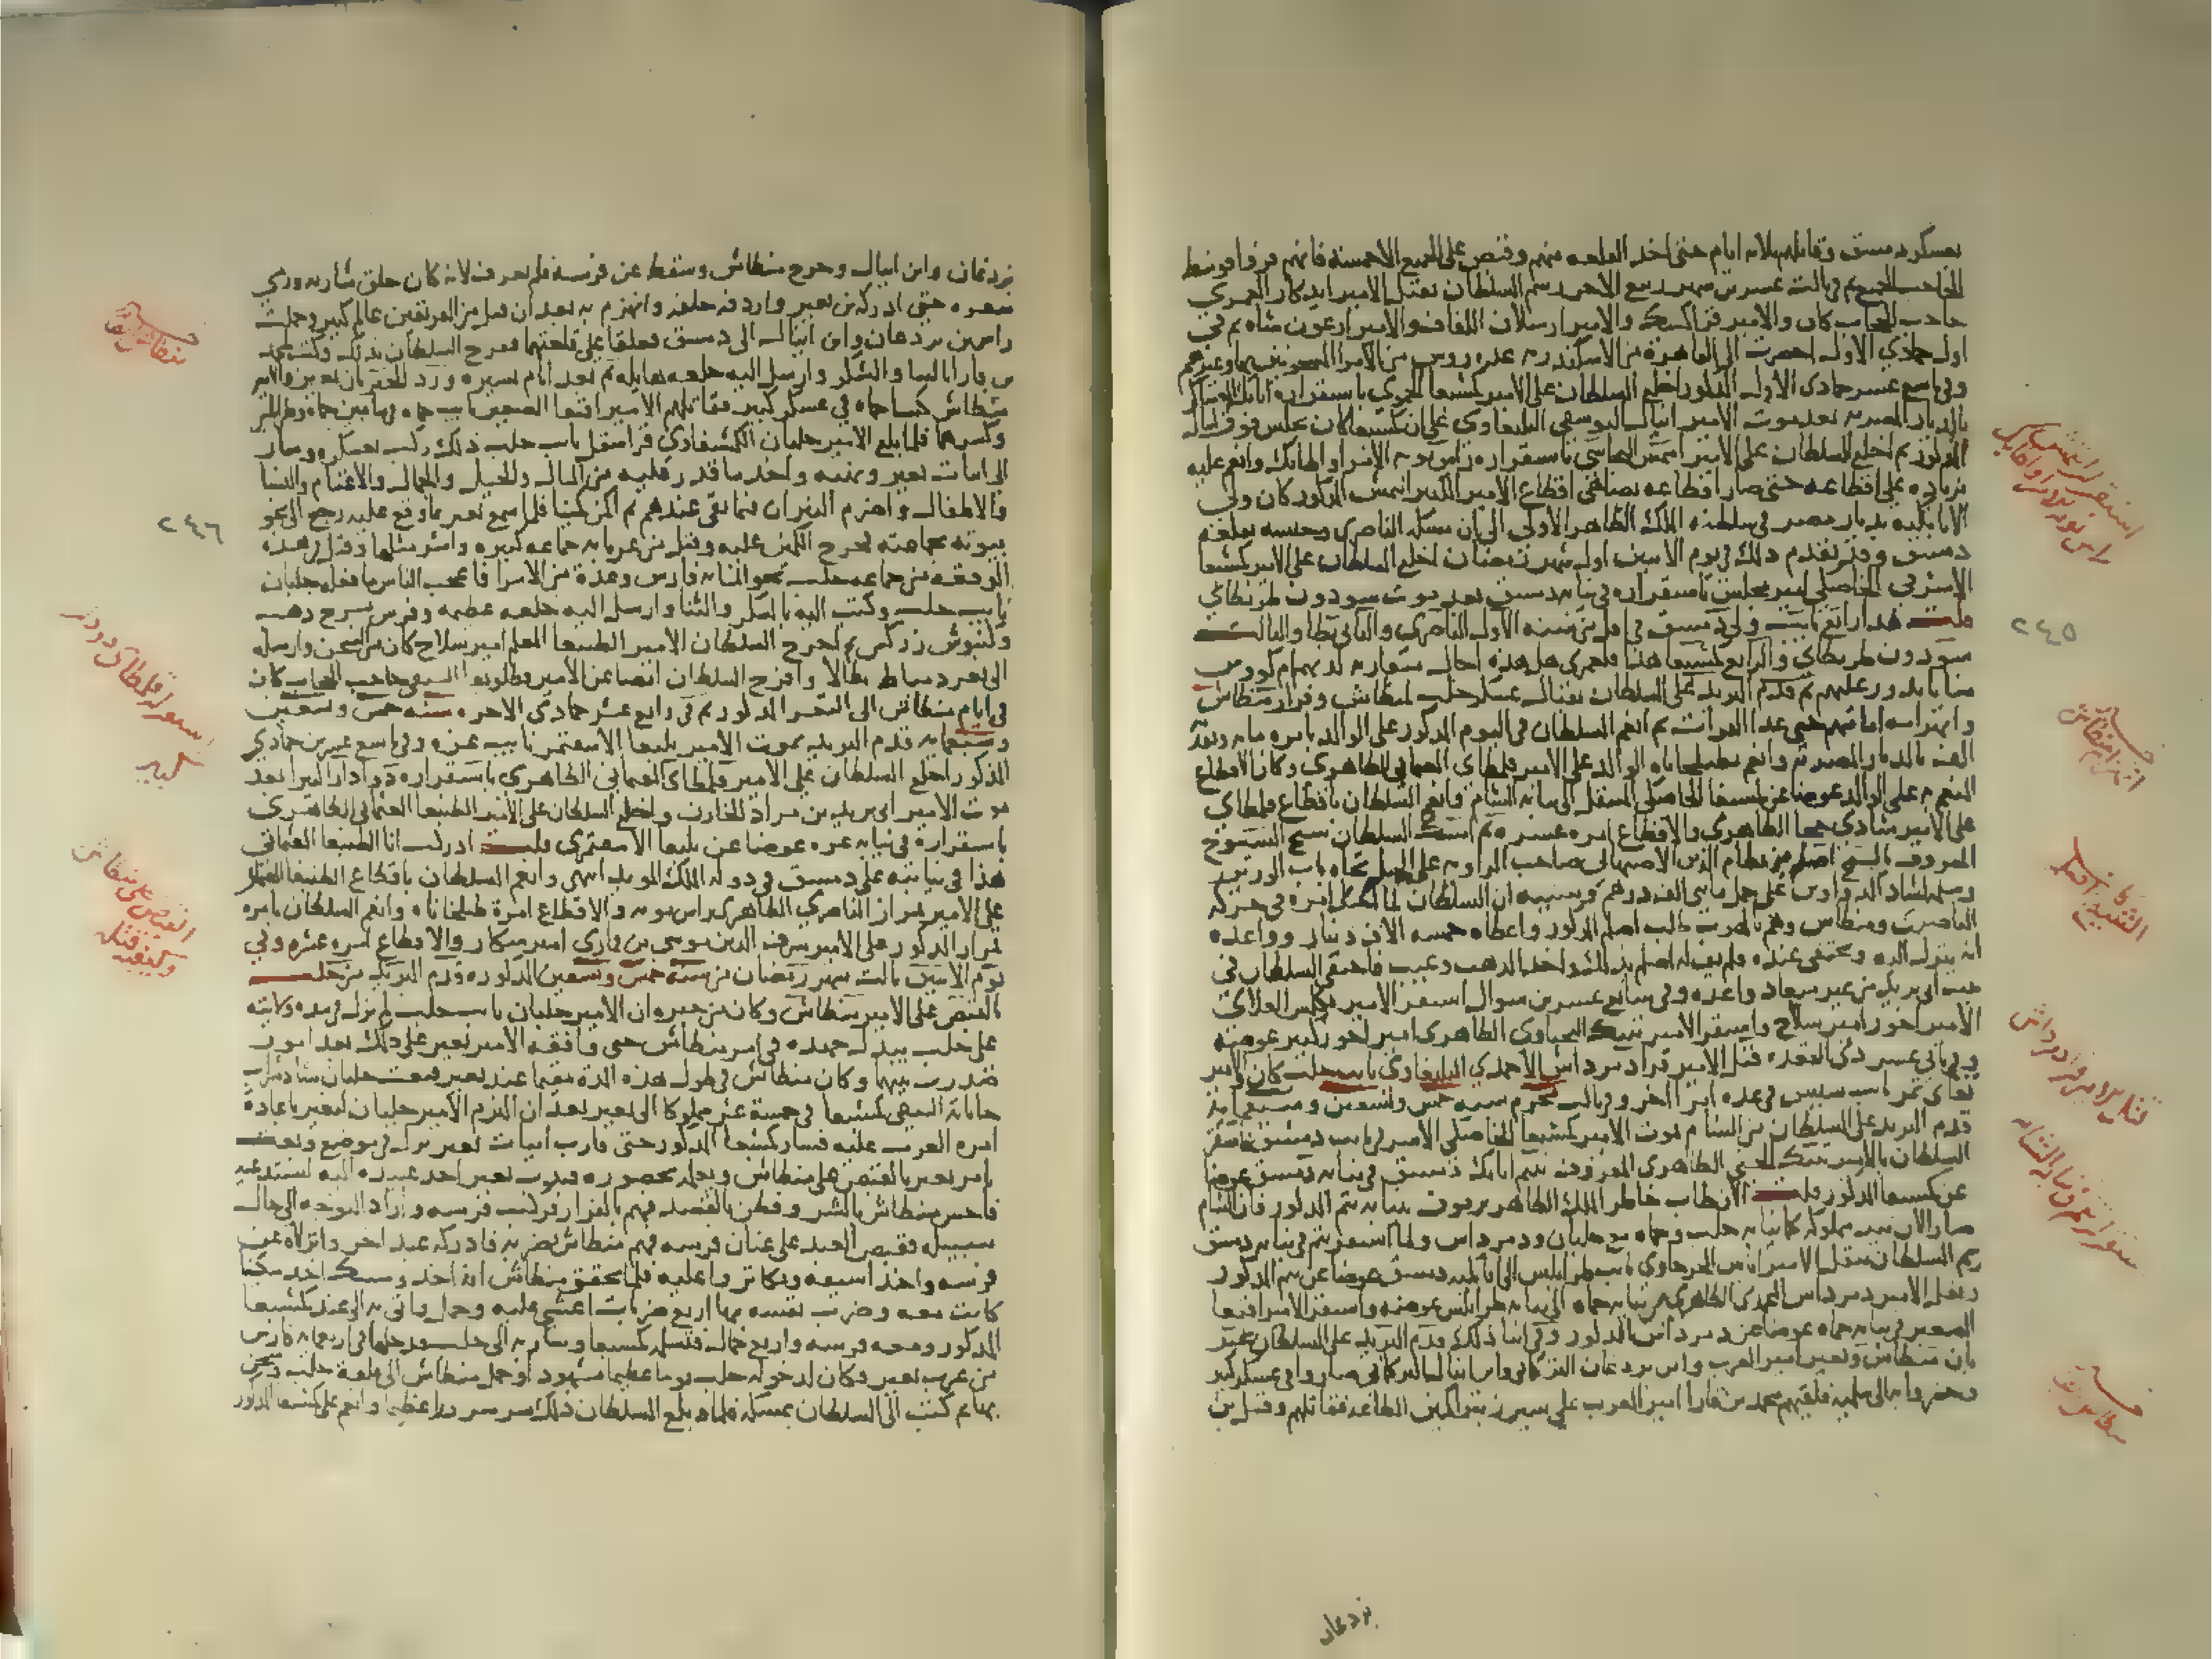 بعسكر دمشق وقاتلهم ثلاثة ايام حتى اخذ القلعه منهم وقبض على الجميع الا خمسة فانهم فروا فوسط
الحاجب الجميع ثم في ثالث عشرين شهر ربيع الاخر رسم السلطان بقتل الامير ايدكار العمري
حاجب الحجاب كان والامير قراكسك والامير ارسلان اللفاف والامير ارغون شاه ثم في
اول جمادي الاولى احضرت الى القاهرة من الاسكندريه عدة روس من الامرا المسجونين بها وغيرهم
وفي تاسع عشر جمادى الاولى المذكور اخلع السلطان على الامير كمشبغا الحموي باستقراره اتابك العساكر
بالديار المصريه بعد موت الامير اينال اليوسفي اليلبغاوي على ان كمشبغا كان يجلس فوق اينال
المذكور ثم اخلع السلطان على الامير ايتمش البجاسي باستقراره راس نوبه الامرا واطابك وانعم عليه
بزياده على اقطاعه حتى صار اقطاعه يضاهي اقطاع الامير الكبير ايتمش المذكور كان ولي
الاتابكيه بديار مصر في سلطنة الملك الظاهر الاولى الى ان مسكه الناصري وحبسه بقلعة
دمشق وقد تقدم ذلك في يوم الاثنين اول شهر رمضان اخلع السلطان على الامير كمشبغا
الاشرفي الخاصكي امير مجلس باستقراره في نيابه دمشق بعد موت سودون طرنطاي
قلت هذا رابع نايب ولي دمشق في اقل من سنه الاول الناصري والثاني بطا والثالث
سودون طرنطاي والرابع كمشبغا هذا
منايا يدور عليهم ثم قدم البريد على السلطان بقتال عسكر حلب لمنطاش وفرار منطاش
وانهزامه امامهم حتى عدا الفرات ثم انعم السلطان في اليوم المذكور على الوالد بامره مايه وتقدمة
الف بالديار المصريه وانعم بطبلخاناه الوالد على الامير قلمطاي العثماني الظاهري وكان الاقطاع
المنعم به على الوالد عوضا عن كمشبغا الخاصكي المنتقل الى نيابه الشام وانعم السلطان باقطاع قلمطاي
على الامير شادي خجا الظاهري والاقطاع امره عشره ثم امسك السلطان شيخ الشيوخ
المعروف بالشيخ اصلم بن نظام الدين الاصبهاني صاحب الزاويه على الجبل تجاه باب الوزير
وسلمه لشاد الدواوين على حمل مايتي الف درهم وسببه ان السلطان لما اختل امره في حركه
الناصري ومنطاش وهم بالهرب طلب اصلم المذكور واعطاه خمسه الاف دينار وواعده
انه ينزل اليه ويختفي عنده فلم يف له اصلم بذلك واخذ الذهب وغيب فاختفى السلطان في
بيت ابي يزيد من غير ميعاد واعده وفي سابع عشرين شوال استقر الامير بكلمش العلاي
الامير اخور امير سلاح واستقر الامير تنبك اليحياوي الظاهري امير اخور كبير عوضه
وفي ثاني عشر ذي القعده قتل الامير قرا دمرداش الاحمدي اليلبغاوي نايب حلب كان والامير
تغاي تمر نايب سيس في عده امرا اخر وفي ثالث محرم سنه خمس وتسعين وسبعمايه
قدم البريد على السلطان من الشام بموت الامير كمشبغا الخاصكي الاشرفي نايب دمشق فاستقر
السلطان بالامير تنبك الحسني الظاهري المعروف بتنم اتابك دمشق في نيابه دمشق عوضا
عن كمشبغا المذكور قلت الان طاب خاطر الملك الظاهر برقوق بنيابه تنم المذكور فان الشام
صار الان بيد مملوكه كما نيابه حلب وحماه مع جلبان ودمرداش ولما استقر تنم في نيابه دمشق
رسم السلطان بنقل الامير اياس الجرجاوي نايب طرابلس الى اتابكيه دمشق عوضا عن تنم المذكور
ونقل الامير دمرداش المحمدي الظاهري من نيابه حماه الى نيابه طرابلس عوضه واستقر الامير اقبغا
الصغير في نيابه حماه عوضا عن دمرداش المذكور وفي اثنا ذلك قدم البريد على السلطان بخبر
بان منطاش ونعير امير العرب وابن بزدغان التركماني وابن اينال التركماني صاروا في عسكر كبير
وحضروا بهم الى سلميه فلقيهم محمد بن قارا امير العرب على شيزر بتراكمين الطاعه فقاتلهم وقتل بن
بزدغان
استقرار ايتمش راس نوبه الامرا واطابك
٢٤٥
انهزام منطاش
قتل الامير قرا دمرداش
استقرار تنم في نيابه الشام
بزدغان وابن اينال وجرح منطاش وسقط عن فرسه فلم يعرف لانه كان حلق شاربه ورمي
شعره حتى ادركه بن نعير واردفه خلفه وانهزم به بعد ان قتل من الفريقين عالم كبير وحملت
راس بن بزدغان وابن اينال الى دمشق فعلقا على قلعتها ففرح السلطان بذلك وكتب لمحمد
بن قارا بالثنا والشكر وارسل اليه خلعه هايله ثم بعد ايام يسيره ورد الخبر بان نعير والامير
منطاش كبسا حماه في عسكر كبير فقاتلهم الامير اقبغا الصغير نايب حماه
وكسرهما فلما بلغ الامير جلبان الكمشبغاوي قراسقل نايب حلب ذلك ركب بعسكره وسار
الى ابيات نعير ونهبه واخذ ما قدر عليه من المال والخيل والجمال والاغنام والنسا
والاطفال واضرم النيران فيما بقي عندهم ثم اكمن كمينا فلما سمع نعير بما وقع عليه رجع الى نحو
بيوته بجماعته فخرج الكمين عليه وقتل من عربانه جماعه كبيره واسر مثلها وقتل في هذه
الوقعه من جماعه حلب نحو المايه فارس وعدة من الامرا فاعجب الناس ما فعله جلبان
نايب حلب وكتب اليه بالشكر والثنا وارسل اليه خلعه عظيمه وفرس بسرج ذهب
وكنبوش زركش ثم اخرج السلطان الامير الطنبغا المعلم امير سلاح كان من السجن وارسله
الى ثغر دمياط بطالا وافرج السلطان ايضا عن الامير قطلوبغا السيفي حاجب الحجاب كان
في ايام منطاش الى الثغر المذكور ثم في رابع عشر جمادى الاخره سنه خمس وتسعين
وسبعمايه قدم البريد بموت الامير يلبغا الاشقتمري نايب غزه وفي تاسع عشرين جمادي
المذكور اخلع السلطان على الامير قلمطاي العثماني الظاهري باستقراره دوادارا كبيرا بعد
موت الامير ابي يزيد بن مراد الخازن واخلع السلطان على الامير الطنبغا العثماني الظاهري
باستقراره في نيابه غزه عوضا عن يلبغا الاشقتمري قلت ادركت انا الطنبغا العثماني
هذا في نيابته على دمشق في دوله الملك المويد انتهى وانعم السلطان باقطاع الطنبغا العثماني
على الامير تمراز الناصري الظاهري راس نوبه والاقطاع امرة طبلخاناه وانعم السلطان بامره
تمراز المذكور على الامير شرف الدين موسى بن قماري امير شكار والاقطاع امره عشره وفي
يوم الاثنين ثالث شهر رمضان من سنه خمس وتسعين المذكوره قدم البريد من حلب
بالقبض على الامير منطاش وكان من خبره ان الامير جلبان نايب حلب لم يزل في مده ولايته
على حلب يبذل جهده في امر منطاش حتى وافقه الامير نعير على ذلك بعد امور
صدرت بينهما وكان منطاش في طول هذه المدة مقيما عند نعير فبعث جلبان شاد شراب
خاناته السيفي كمشبغا في خمسة عشر مملوكا الى نعير بعد ان التزم الامير جلبان لنعير باعادة
امره العرب عليه فسار كمشبغا المذكور حتى قارب ابيات نعير نزل في موضع وبعث
يامر نعير بالقبض على منطاش ويعلمه بحضوره فندب نعير احد عبيده اليه يستدعيه
فاحس منطاش بالشر وفطن بالقصد فهم بالفرار فركب فرسه واراد التوجه الى حال
سبيله فقبض العبد على عنان فرسه فهم منطاش بضربه فادركه عبد اخر وانزلاه عن
فرسه واخذا سيفه وتكاثروا عليه فلما تحقق منطاش انه اخذ ومسك اخذ سكينا
كانت معه وضرب نفسه بها اربع ضربات اغشي عليه وحمل واتي به الى عند كمشبغا
المذكور ومعه فرسه واربع جمال فتسلمه كمشبغا وسار به الى حلب فدخلها في اربعمايه فارس
من عرب نعير فكان لدخوله حلب يوما عظيما مشهودا وحمل منطاش الى قلعة حلب وسجن
بها ثم كتب الى السلطان بمسكه فلما بلغ السلطان ذلك سر سرورا عظيما وانعم على كمشبغا المذكور
٢٤٦
القبض على منطاش وكيفيه قتله